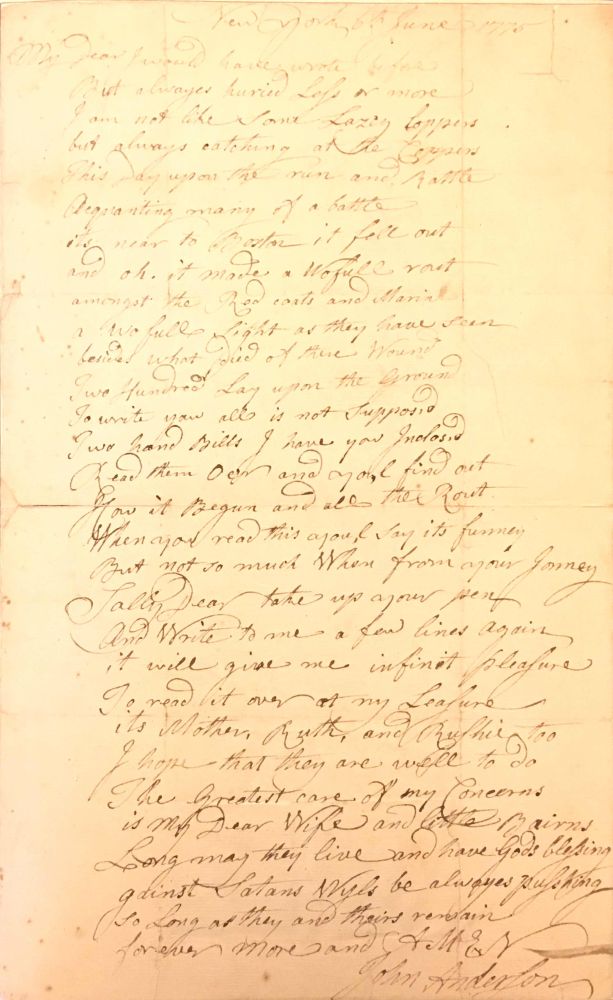 New York, 6th June 1775
My Dear I would have wrote before
But alwayes huried Less or more
I am not like Some Lazey Loppers
but always catching at the Coppers
This day upon the run and Rattle
Acquanting many of a battle
its near to Boston it fell out
and oh. it made a Wofull rout
amongst the Red coats and Marine
a Wofull Sight as they have seen
besides what Died of there Wound
Two Hundred Lay upon the Ground
To write you all is not Supposd
Two hand Bills I have you Inclosd
Read them Oer and youl find out
How it Begun and all the Rout
When you read this youl Say its funney
But not so much When from your Jonney
Sally Dear take up your pen
And Write to me a few lines again
it will give me infinit pleasure
To read it over at my Leasure
its Mother, Ruth, and Ruthie too
I hope that they are well to do
The Greatest care of my Concerns
is My Dear Wife and little Bairns
Long may they live and have Gods blessing
gainst Satans Wyls be alwayes pushing
So Long as they and theirs remain
for ever more and AMEN
John Anderson